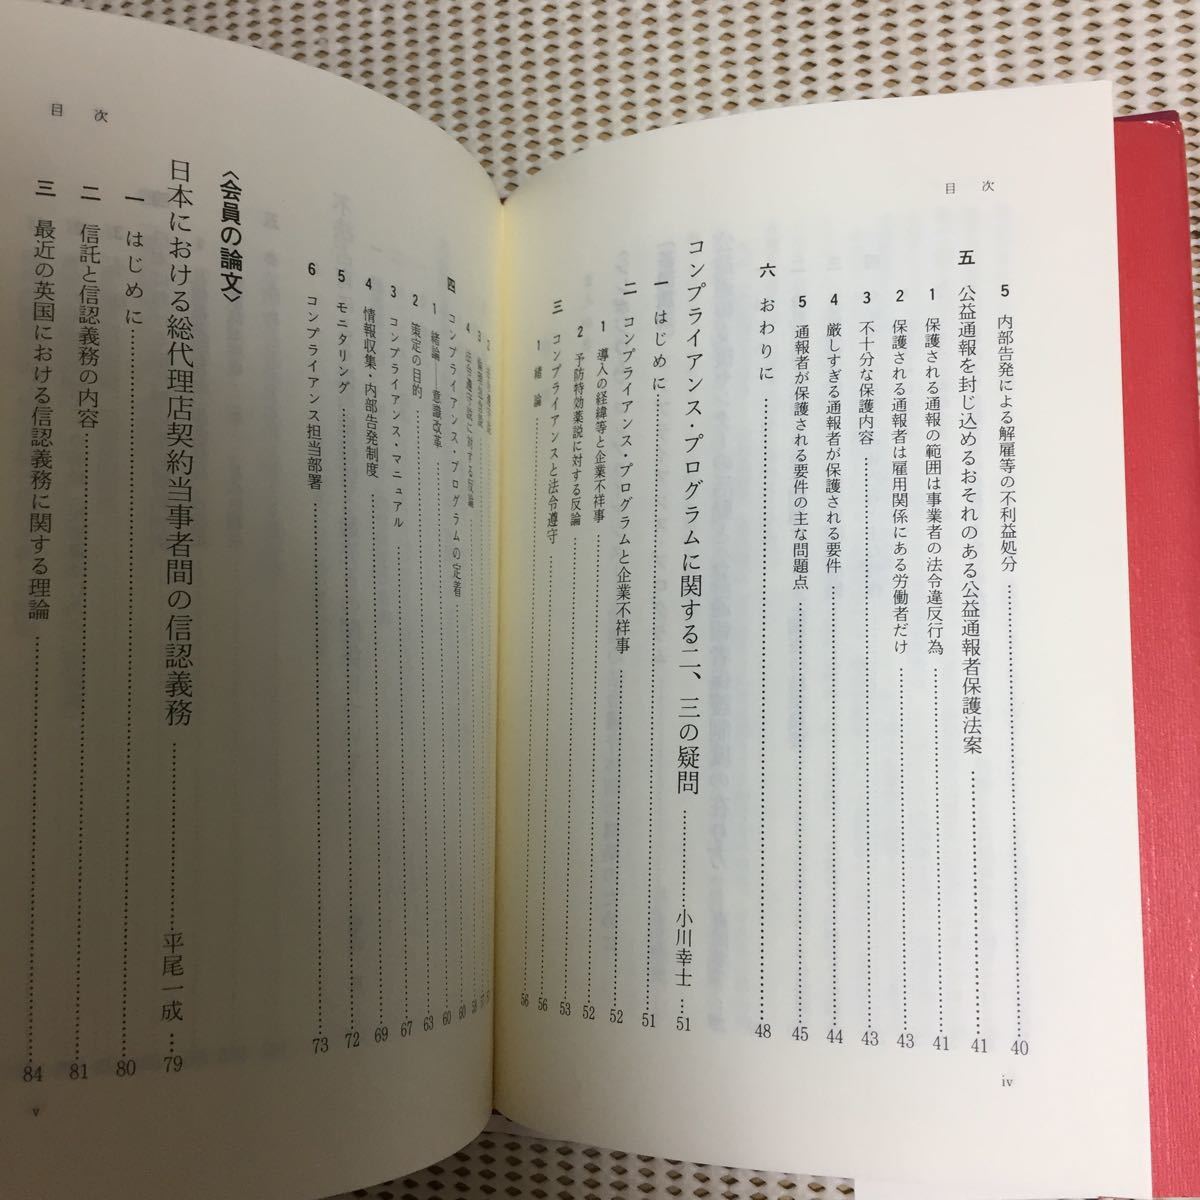 目次
5 内部告発による解雇等の不利益処分……40
五 公益通報を封じ込めるおそれのある公益通報者保護法案……41
1 保護される通報の範囲は事業者の法令違反行為……41
2 保護される通報者は雇用関係にある労働者だけ……43
3 不十分な保護内容……43
4 厳しすぎる通報者が保護される要件……44
5 通報者が保護される要件の主な問題点……45
六 おわりに……48
コンプライアンス・プログラムに関する二、三の疑問……小川幸士…51
一 はじめに……51
二 コンプライアンス・プログラムと企業不祥事……52
1 導入の経緯等と企業不祥事……52
2 予防特効薬説に対する反論……53
三 コンプライアンスと法令遵守……56
1 緒論……56
iv
目次
4 法令遵守説に対する反論……60
四 コンプライアンス・プログラムの定着……60
1 緒論――意識改革……63
2 策定の目的……67
3 コンプライアンス・マニュアル
4 情報収集・内部告発制度……69
5 モニタリング……72
6 コンプライアンス担当部署……73
〈会員の論文〉
日本における総代理店契約当事者間の信認義務……平尾一成…79
一 はじめに……80
二 信託と信認義務の内容……81
三 最近の英国における信認義務に関する理論……84
v